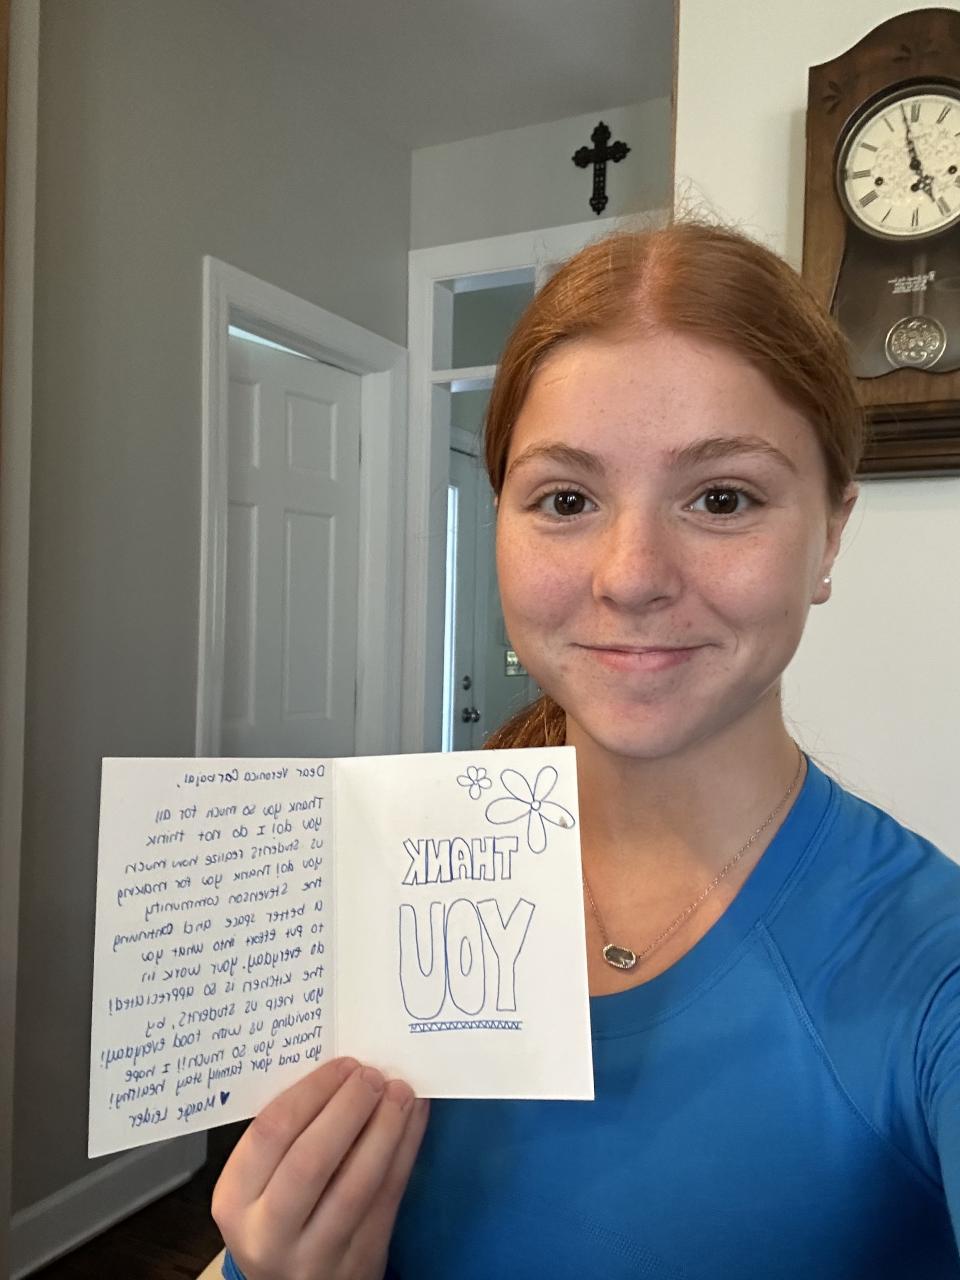 Dear Veronica Carbajal,
Thank you so much for all
you do! I do not think
us students realize how much
you do! Thank you for making
the Stevenson community
a better space and continuing
to put effort into what you
do everyday. your work in
the kitchen is so appreciated!
you help us students, by
providing us with food everyday!
Thank you so much!! I hope
you and your family stay healthy!
♥ Maige Leider
THANK
YOU